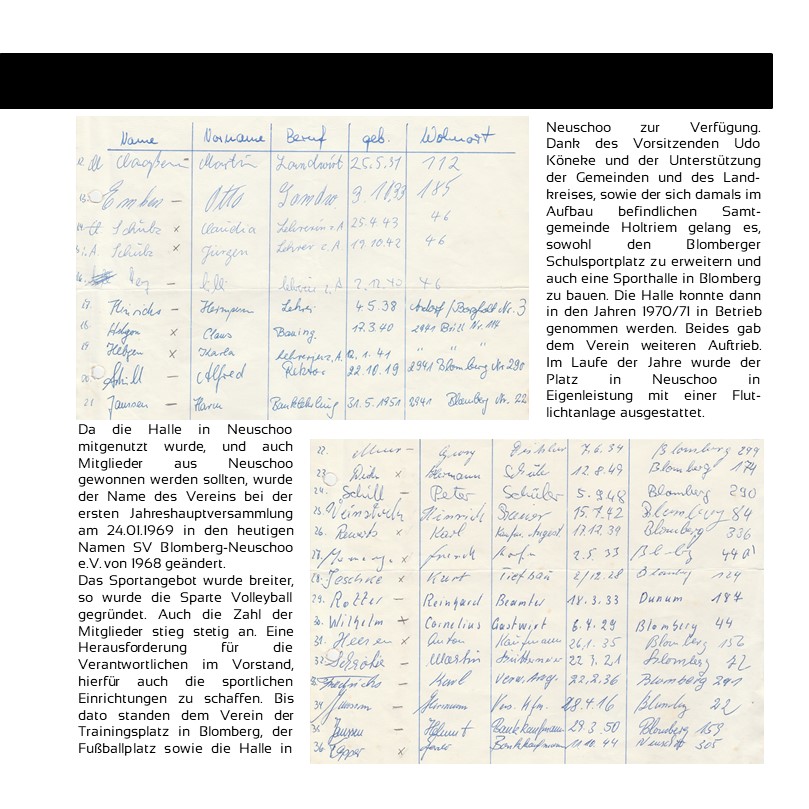 Name Vorname Beruf geb. Wohnort
Martin Landwirt 25.5.31 112
Otto 185
Schütz x Claudia Lehrerin z.A 25.4.43 46
Schütz x Jürgen Lehrer z.A 17.10.42 46
46
17. Hinrichs — Hermann Lehrer 4.5.38
18 x Claus Bauing. 17.3.40 2941
19 x Karla Lehrerin z.A. 2.1.41 2941 Blomberg Nr 290
20 Schill — Alfred Rektor 22.10.19
21 Janssen — Banklehrling 31.5.1951 2941 Blomberg Nr. 22
Neuschoo zur Verfügung.
Dank des Vorsitzenden Udo
Köneke und der Unterstützung
der Gemeinden und des Land-
kreises, sowie der sich damals im
Aufbau befindlichen Samt-
gemeinde Holtriem gelang es,
sowohl den Blomberger
Schulsportplatz zu erweitern und
auch eine Sporthalle in Blomberg
zu bauen. Die Halle konnte dann
in den Jahren 1970/71 in Betrieb
genommen werden. Beides gab
dem Verein weiteren Auftrieb.
Im Laufe der Jahre wurde der
Platz in Neuschoo in
Eigenleistung mit einer Flut-
lichtanlage ausgestattet.
Da die Halle in Neuschoo
mitgenutzt wurde, und auch
Mitglieder aus Neuschoo
gewonnen werden sollten, wurde
der Name des Vereins bei der
ersten Jahreshauptversammlung
am 24.01.1969 in den heutigen
Namen SV Blomberg-Neuschoo
e.V. von 1968 geändert.
Das Sportangebot wurde breiter,
so wurde die Sparte Volleyball
gegründet. Auch die Zahl der
Mitglieder stieg stetig an. Eine
Herausforderung für die
Verantwortlichen im Vorstand,
hierfür auch die sportlichen
Einrichtungen zu schaffen. Bis
dato standen dem Verein der
Trainingsplatz in Blomberg, der
Fußballplatz sowie die Halle in
22. Georg 7.6.34 Blomberg 299
23 x Hermann Schüler 12.8.49 Blomberg 174
24. Schill — Peter Schüler 5.9.48 Blomberg 290
25. Hinrich 15.7.42 Blomberg 84
26. x Karl 17.12.39 Blomberg 336
27. x 2.5.33
28. Jeschke x Kurt Tiefbau Blomberg 124
29. Rotter — Reinhard Beamter 18.3.33 Dunum 187
30. Wilhelm x Cornelius Gastwirt 6.4.29 Blomberg 44
31. Heeren x Anton Kaufmann 26.1.35 Blomberg 156
32 — Martin 22.3.21 Blomberg
— Karl Verw. Ang. 22.2.36 Blomberg 291
34 Janssen — Hermann Vers. Kfm. 28.4.16 Blomberg 22
35 Janssen — Helmut Bankkaufmann 29.3.50 Blomberg 159
36 x Bankkaufmann 11.10.44 Neuschoo 305